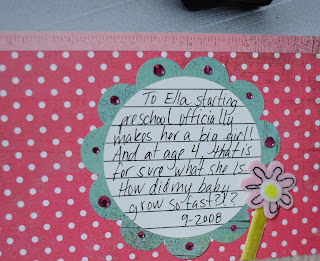 To Ella starting
preschool officially
makes her a big girl!
And at age 4 that is
for sure what she is.
How did my baby
grow so fast?!?
9-2008